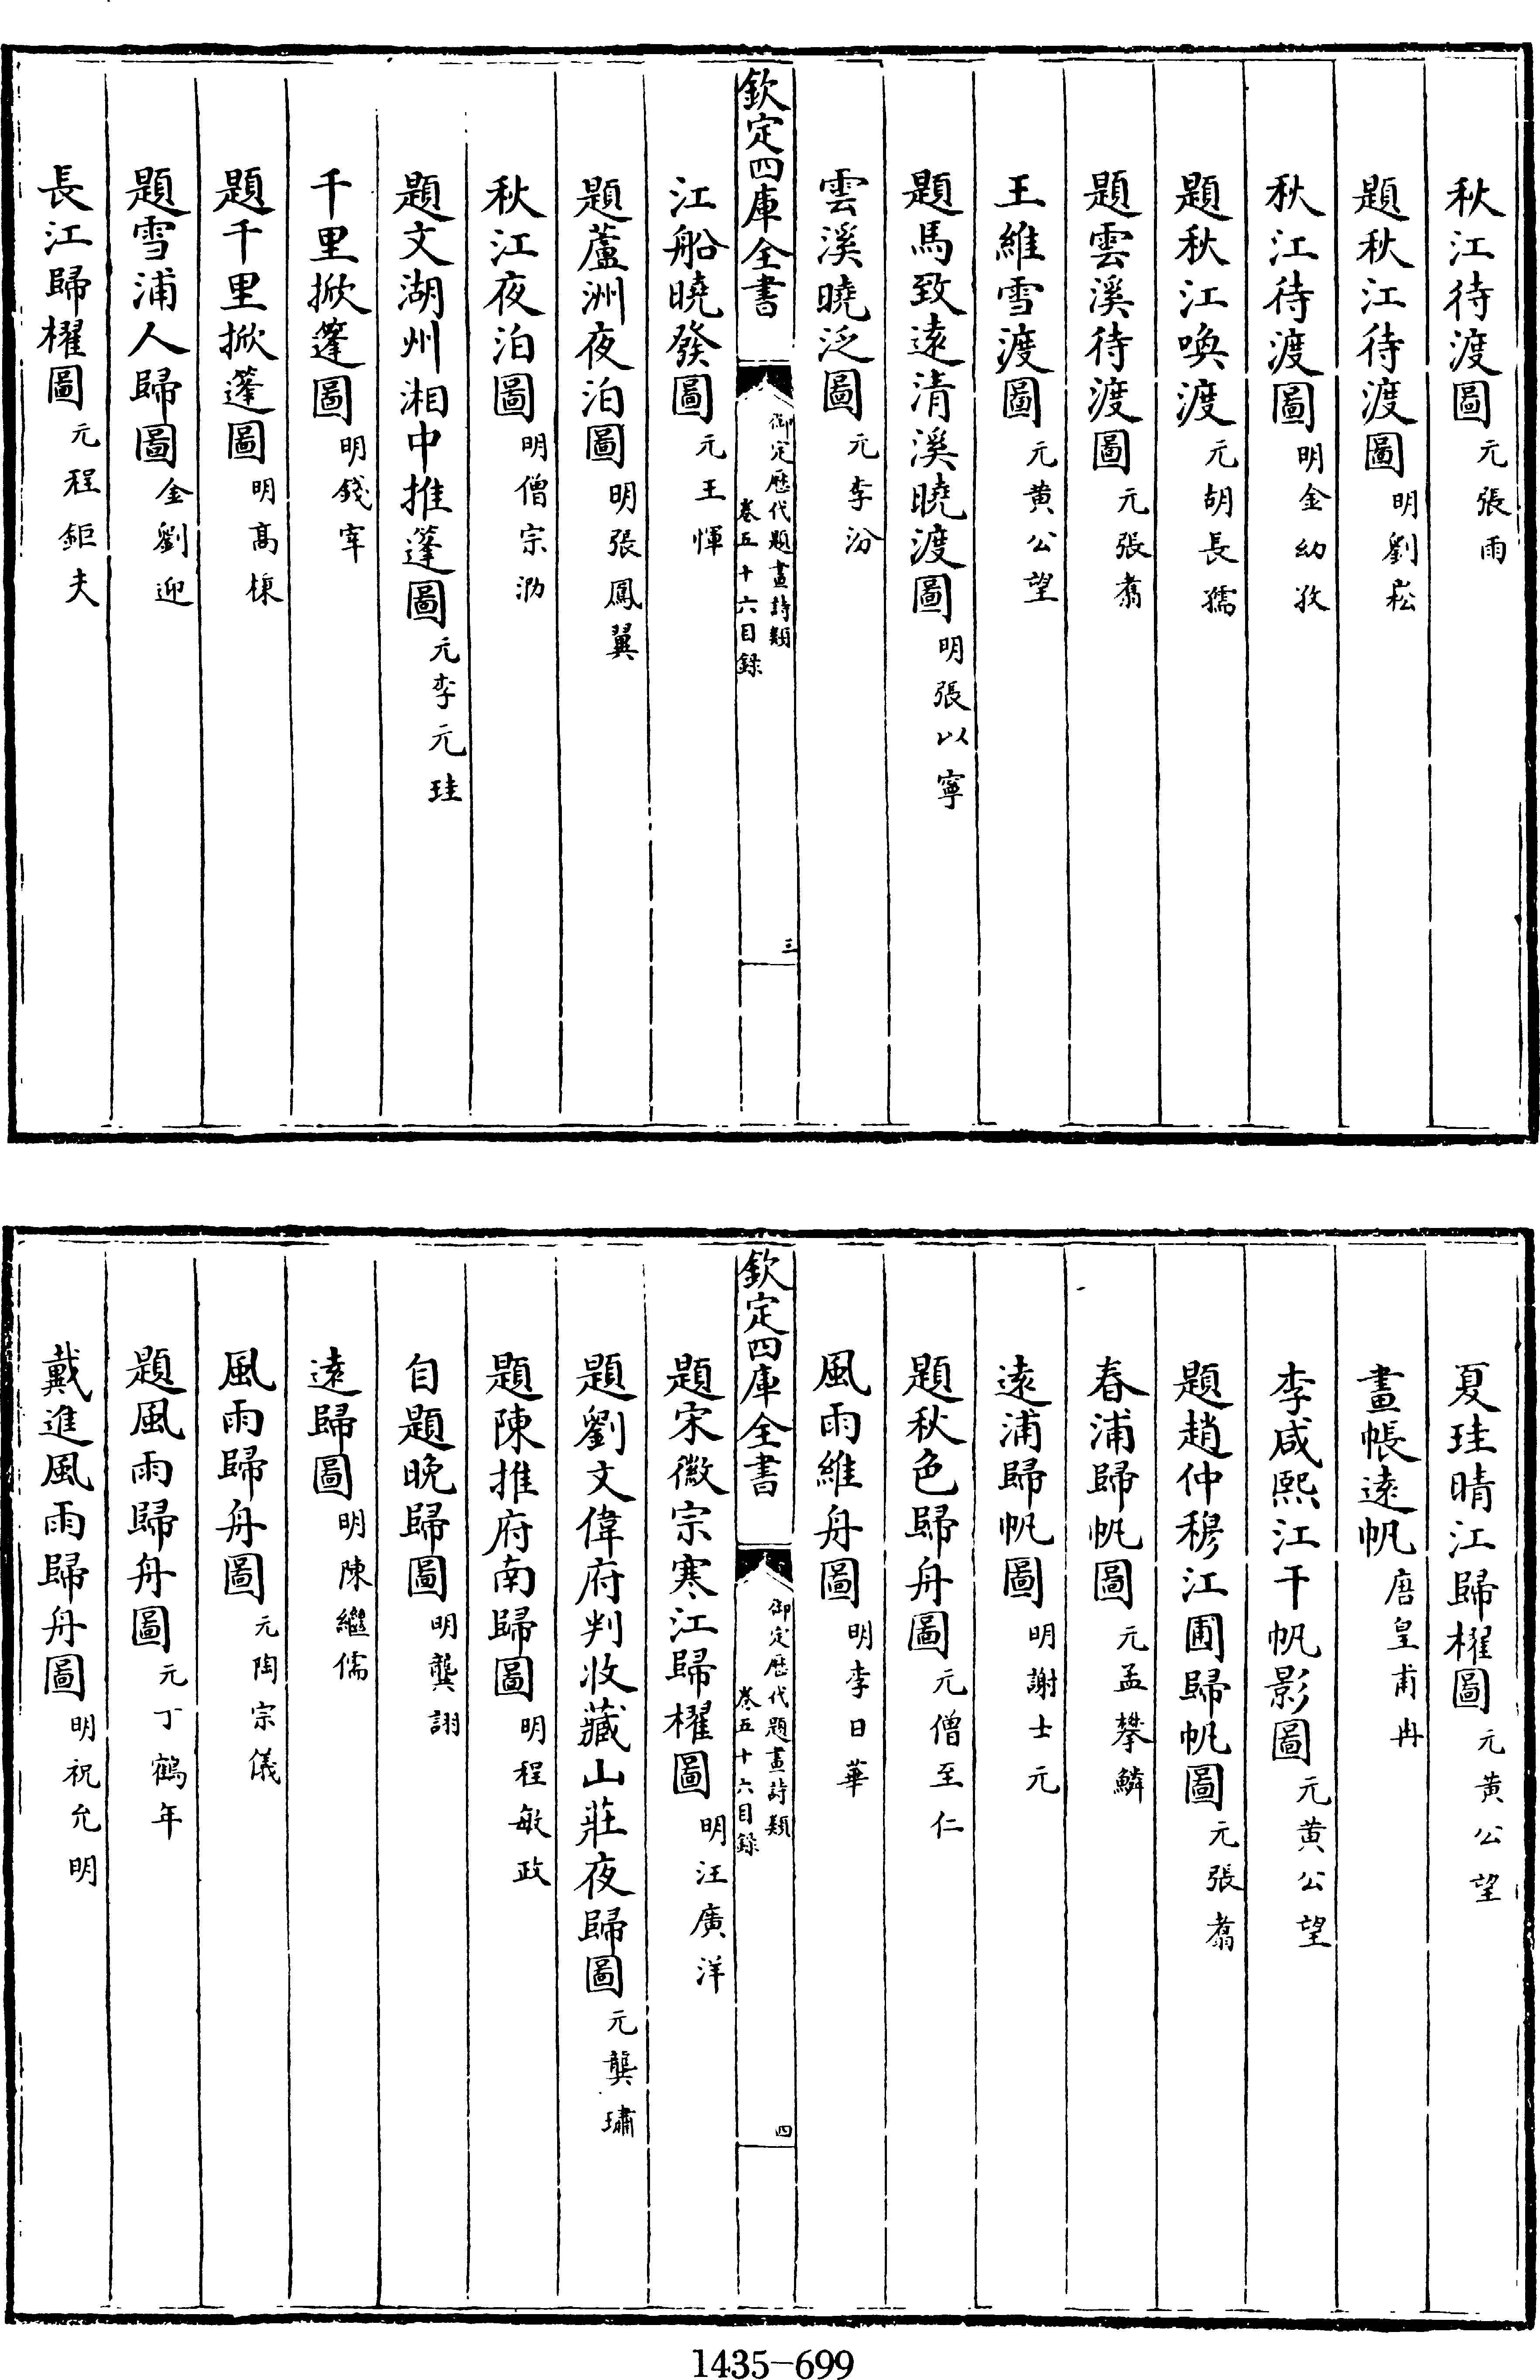 秋江待渡圖元張雨
題秋江待渡圖明劉崧
秋江待渡圖明金幼孜
題秋江喚渡元胡長孺
題雲溪待渡圖元張翥
王維雪渡圖元黄公望
題馬致遠清溪曉渡圖明張以寧
雲溪曉泛圖元李汾
欽定四庫全書
御定歷代題畫詩類
卷五十六目録
三
江船曉發圖元王惲
題蘆洲夜泊圖明張鳳翼
秋江夜泊圖明僧宗泐
題文湖州湘中推篷圖元李元珪
千里掀篷圖明錢宰
題千里掀篷圖明高棅
題雪浦人歸圖金劉迎
長江歸櫂圖元程鉅夫
夏珪晴江歸櫂圖元黄公望
畫帳遠帆唐皇甫冉
李咸熙江干帆影圖元黄公望
題趙仲穆江圃歸帆圖元張翥
春浦歸帆圖元孟攀鱗
遠浦歸帆圖明謝士元
題秋色歸舟圖元僧至仁
風雨維舟圖明李日華
欽定四庫全書
御定歷代題畫詩類
卷五十六目録
四
題宋徽宗寒江歸櫂圖明汪廣洋
題劉文偉府判收藏山莊夜歸圖元龔璛
題陳推府南歸圖明程敏政
自題晚歸圖明龔詡
遠歸圖明陳繼儒
風雨歸舟圖元陶宗儀
題風雨歸舟圖元丁鶴年
戴進風雨歸舟圖明祝允明
1435-699